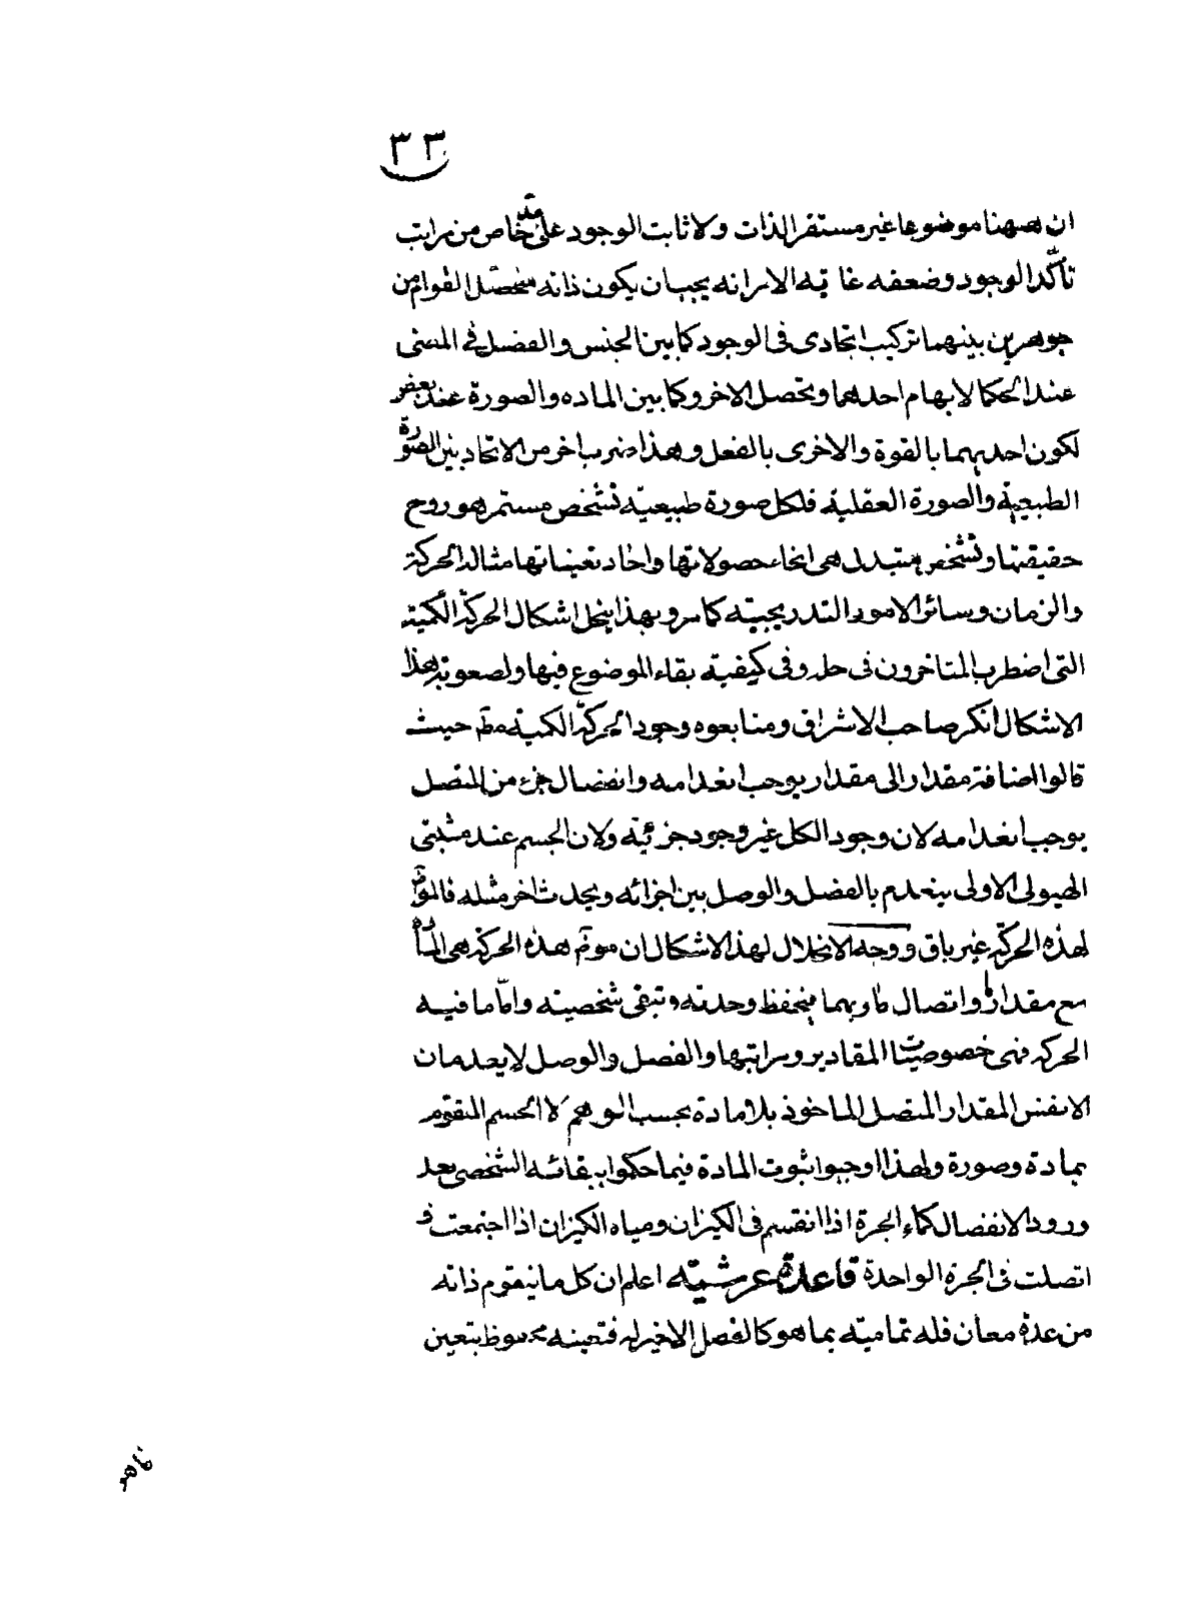 ٣٣
ان ههنا موضوعا غير مستقر الذات ولا ثابت الوجود على حد خاص من مراتب
تأكّد الوجود وضعفه غايته الامر انه يجب ان يكون ذاته متحصّل القوام من
جوهرين بينهما تركيب اتحادى فى الوجود كما بين الجنس والفصل فى المشى
عند الحكما لابهام احدهما وتحصل الاخر وكما بين الماده والصورة عند بعض
لكون احديهما بالقوة والاخرى بالفعل وهذا ضرب اخر من الاتحاد بين الصّورة
الطبيعية والصورة العقلية فلكل صورة طبيعيّة تشخص مستمر هو روح
حقيقتها وتشخص متبدل هى انحاء حصولاتها واحاد تعيناتها مثاله الحركة
والزمان وسائر الامور التدريجيّة كما مر وبهذا ينحل اشكال الحركة الكميّة
التى اضطرب المتاخرون فى حله وفى كيفية بقاء الموضوع فيها ولصعوبة هذا
الاشكال انكر صاحب الاشراق ومتابعوه وجود الحركة الكمية مطم حيث
قالوا اضافة مقدار الى مقدار يوجب انعدامه وانفصال جزء من المتصل
يوجب انعدامه لان وجود الكل غير وجود جزئيّة ولان الجسم عند مثبتى
الهيولى الاولى ينعدم بالفصل والوصل بين اجزائه ويحدث اخر مثله فالموضوع
لهذه الحركة غير باق ووجه الانحلال لهذ الاشكال ان موضوع هذه الحركة هى المادة
مع مقدار ما واتصال ما وبهما ينحفظ وحدته وتبقى شخصيته وامّا ما فيه
الحركة فهى خصوصيات المقادير ومراتبها والفصل والوصل لا يعدمان
الا نفس المقدار المتصل الماخوذ بلا مادة بحسب الوهم لا الجسم المتقوّم
بمادة وصورة ولهذا اوجبوا ثبوت المادة فيما حكموا ببقائه الشخصى بعد
ورود الانفصال كماء الجرة اذا انقسم فى الكيزان ومياه الكيزان اذا اجتمعت و
اتصلت فى الجرة الواحدة قاعدة عرشيّة اعلم ان كل ما يتقوم ذاته
من عدة معان فله تماميّة بما هو كالفصل الاخير له فتعينه محفوظ بتعين